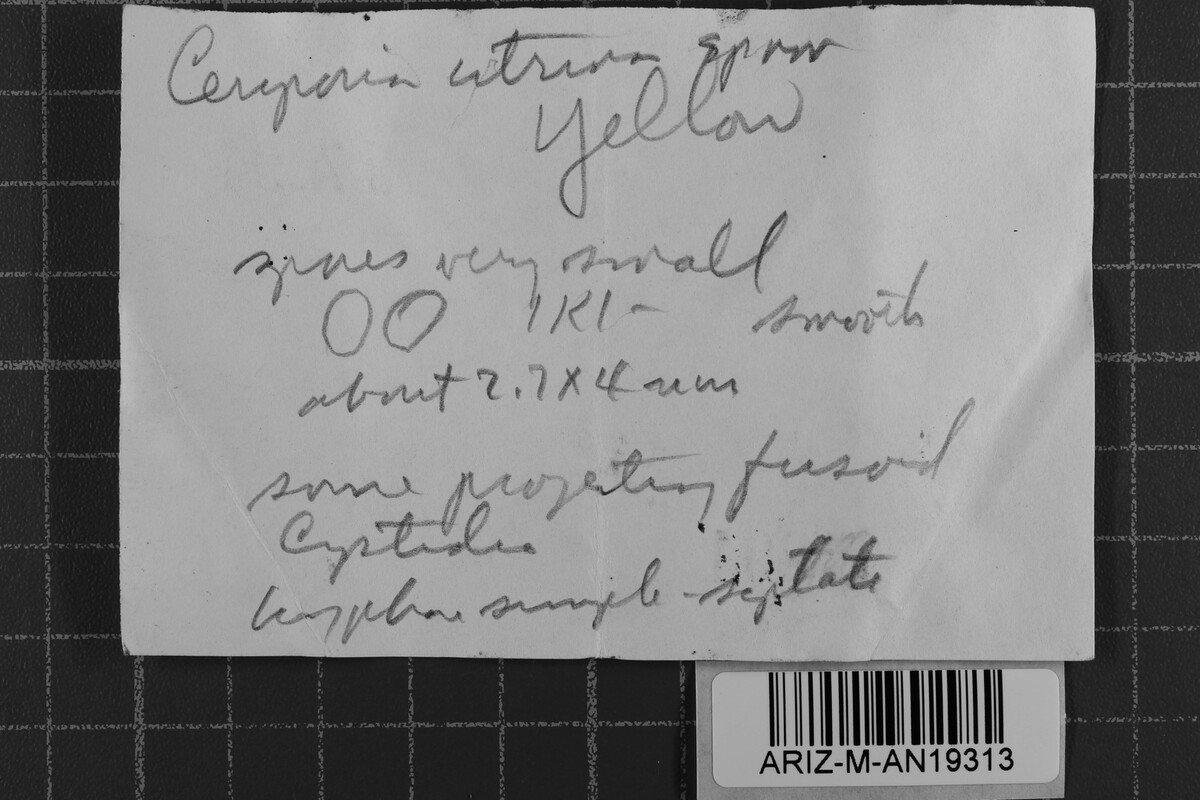 Ceriporia citrina
Yellow
spores very small
OO IKI- smooth
about 2.7 X 4 um
some projecting fusoid
Cystidia
hyphae simple-septate
ARIZ-M-AN19313